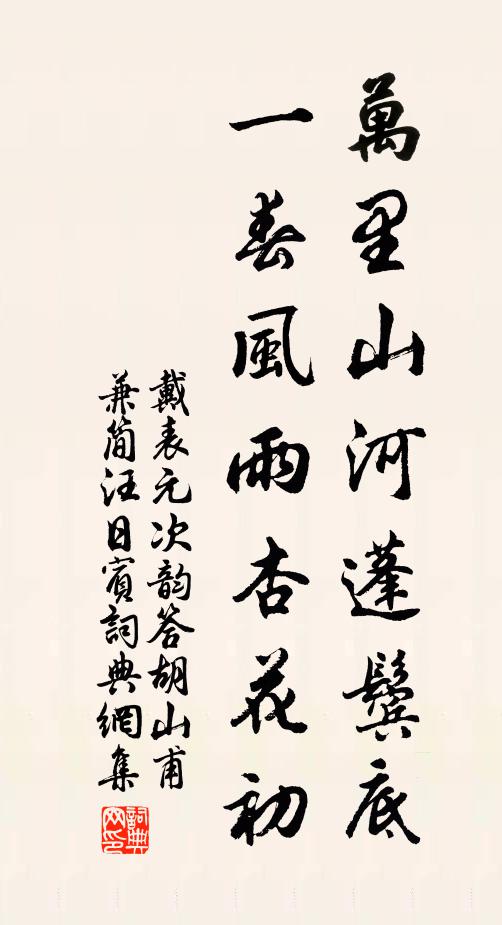 萬里山河蓬鬢底
一春風雨杏花初
戴表元次韵答胡山甫
兼簡汪日賓詞典網集
詞典網印